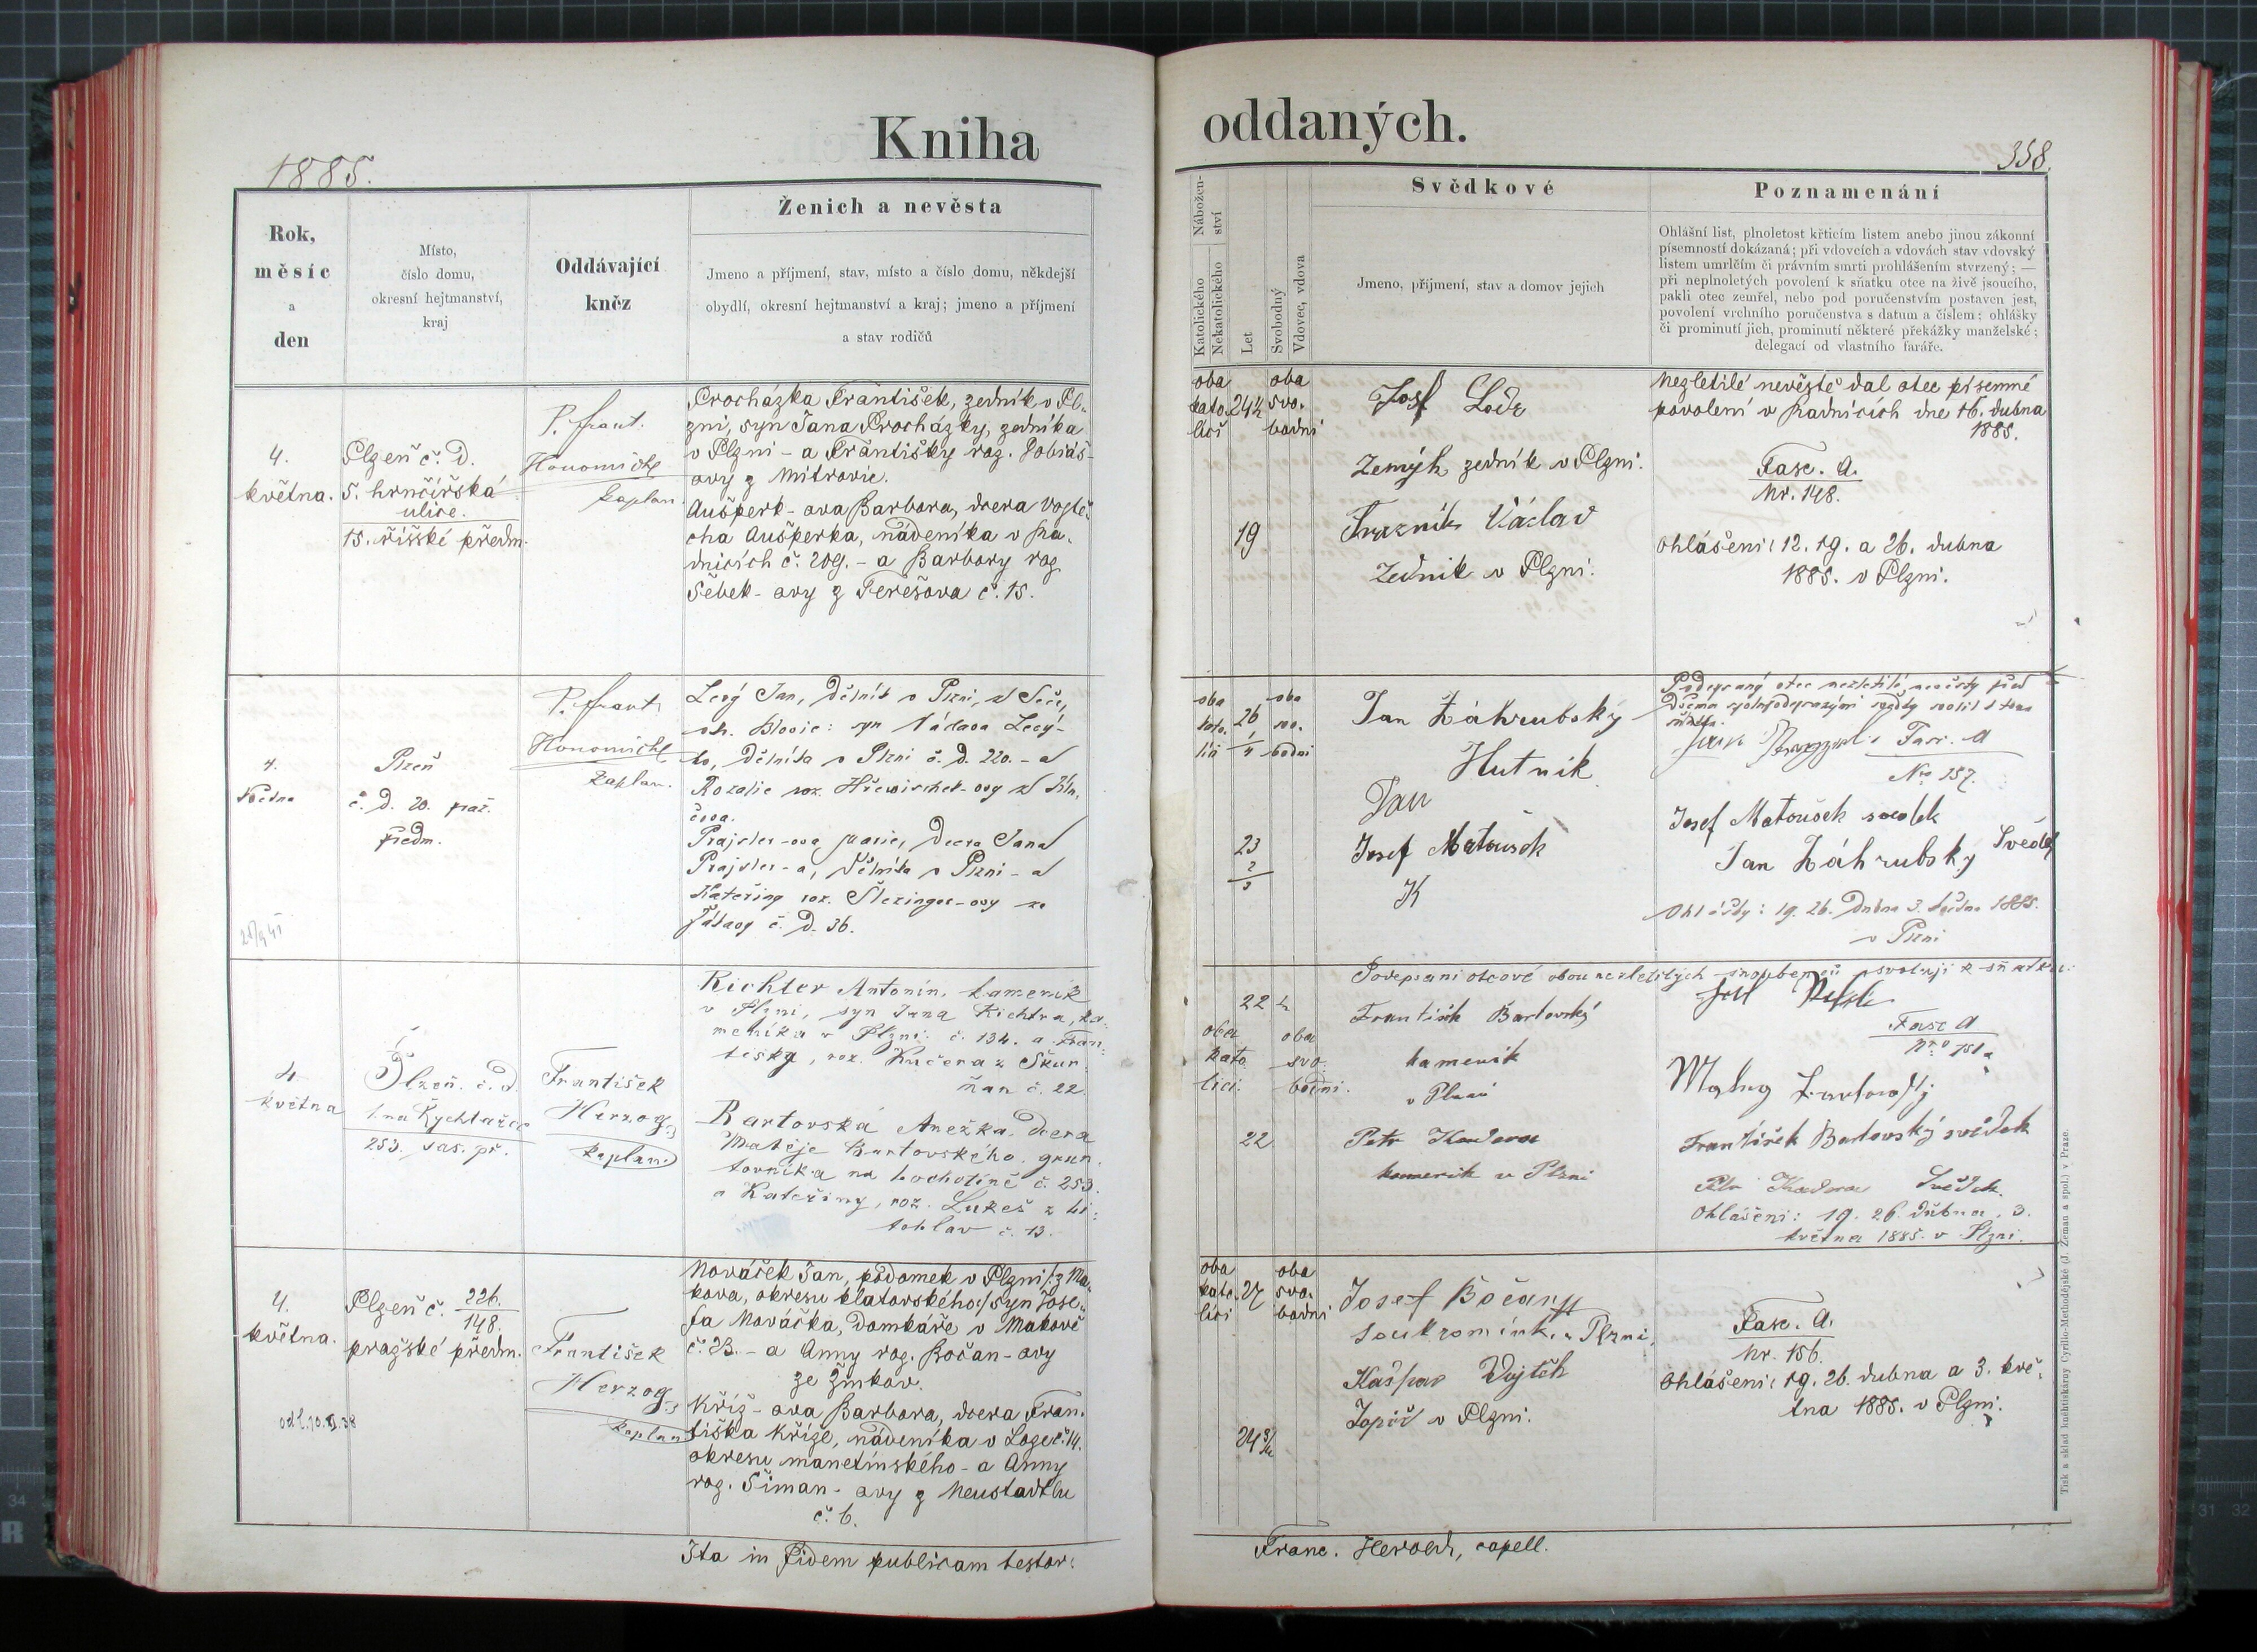 Kniha oddaných.
1885.
358.
Rok,
měsíc
a
den
Místo,
číslo domu,
okresní hejtmanství,
kraj
Oddávající
kněz
Ženich a nevěsta
Jmeno a příjmení, stav, místo a číslo domu, někdejší
obydlí, okresní hejtmanství a kraj; jmeno a příjmení
a stav rodičů
Nábožen-
ství
Katolického
Nekatolického
Let
Svobodný
Vdovec, vdova
Svědkové
Jmeno, přijmení, stav a domov jejich
Poznamenání
Ohlášní list, plnoletost křticím listem anebo jinou zákonní
písemností dokázaná; při vdovcích a vdovách stav vdovský
listem umrlčím či právním smrti prohlášením stvrzený; —
při neplnoletých povolení k sňatku otce na živě jsoucího,
pakli otec zemřel, nebo pod poručenstvím postaven jest,
povolení vrchního poručenstva s datum a číslem; ohlášky
či prominutí jich, prominutí některé překážky manželské;
delegací od vlastního faráře.
4.
května.
Plzeň č. d.
5. hrnčířská
ulice.
15. říšské předm.
P. Frant.
Honomichl
kaplan.
Procházka František, zedník v Pl-
zni, syn Jana Procházky, zedníka
v Plzni - a Františky roz. Tobiáš-
ovy z Mitrovic.
Aušperk-ova Barbora, dcera Vojtě-
cha Aušperka, nádeníka v Ra-
dnicích č. 209. - a Barbory roz.
Šebek-ovy z Terešova č. 15.
oba
kato
líci
24½
oba
svo-
bodni
19
Josf
zedník v Plzni.
Václav
Zedník v Plzni.
Nezletilé nevěstě dal otec písemné
povolení v Radnicích dne 16. dubna
1885.
Fasc. A.
Nr. 148.
Ohlášeni: 12. 19. a 26. dubna
1885. v Plzni.
4.
května
Plzeň
č. d. 20. praž.
předm.
P. Frant
Honomichl
kaplan.
Levý Jan, dělník v Plzni, z Seče,
ok. Blovic: syn Václava Levý-
ho, dělníka v Plzni č. d. 220. - a
Rozalie roz.
Prajsler-ova Marie, dcera Jana
Prajsler-a, dělníka v Plzni - a
Kateřiny roz. Šlezinger-ovy ze
č. d. 36.
oba
kato.
líci
26
1
4
oba
svo.
bodni
23
2
3
Jan Záhrubský
Hutník
Jan
Josef Matoušek
K
Podepsaný otec nezletilé nevěsty před
dvěma spolupodepsanými svědky svolil k tomu
sňatku.
Fasc. A
Nro 157.
Josef Matoušek svědek
Jan Záhrubský Svědek
Ohlášky: 19. 26. Dubna 3. května 1885.
v Plzni
4.
května
Plzeň. č. d.
1. na Rychtářce
253. sas. př.
František
Herzog
kaplan
Richter Antonín, kameník
v Plzni, syn Jana Richtra, ka-
meníka v Plzni č. 134. a Fran-
tišky, roz. Kučera z Škur-
ňan č. 22.
Bartovská Anežka, dcera
Matěje Bartovského, grun-
tovníka na Lochotíně č. 253.
a Kateřiny, roz. Lukeš z Li-
tohlav č. 13.
22
oba
kato
líci.
oba
svo
bodni.
22
Podepsaní otcové obou nezletilých snoubenců svolují k sňatku:
František Bartovský
kameník
v Plzni
Petr
kameník v Plzni
Fasc A
Nro 151.
František Bartovský svědek
Petr Svědek.
Ohlášeni: 19. 26. dubna, 3.
května 1885. v Plzni.
4.
května.
Plzeň č. 226.
148.
pražské předm.
František
Herzog
kaplan
Nováček Jan, podomek v Plzni /: z Ma-
kova, okresu klatovského :/ syn Jose-
fa Nováčka, domkáře v Makově
č. 23. - a Anny roz. Bočan-ovy
ze Žinkov.
Kříž-ova Barbora, dcera Fran-
tiška Kříže, nádeníka v Loze č. 14.
okresu manetínského - a Anny
roz. Šiman-ovy z Neustadtlu
č. 6.
oba
kato-
líci
27
oba
svo-
bodni
24
Josef Bočany
soukromník v Plzni,
Kašpar Vojtěch
Topič v Plzni.
Fasc. A.
Nr. 156.
Ohlášeni: 19. 26. dubna a 3. kvě-
tna 1885. v Plzni.
Ita in fidem publicam testor:
Franc. Herold, capell.
Tisk a sklad knihtiskárny Cyrillo-Methodějské (J. Zeman a spol.) v Praze.